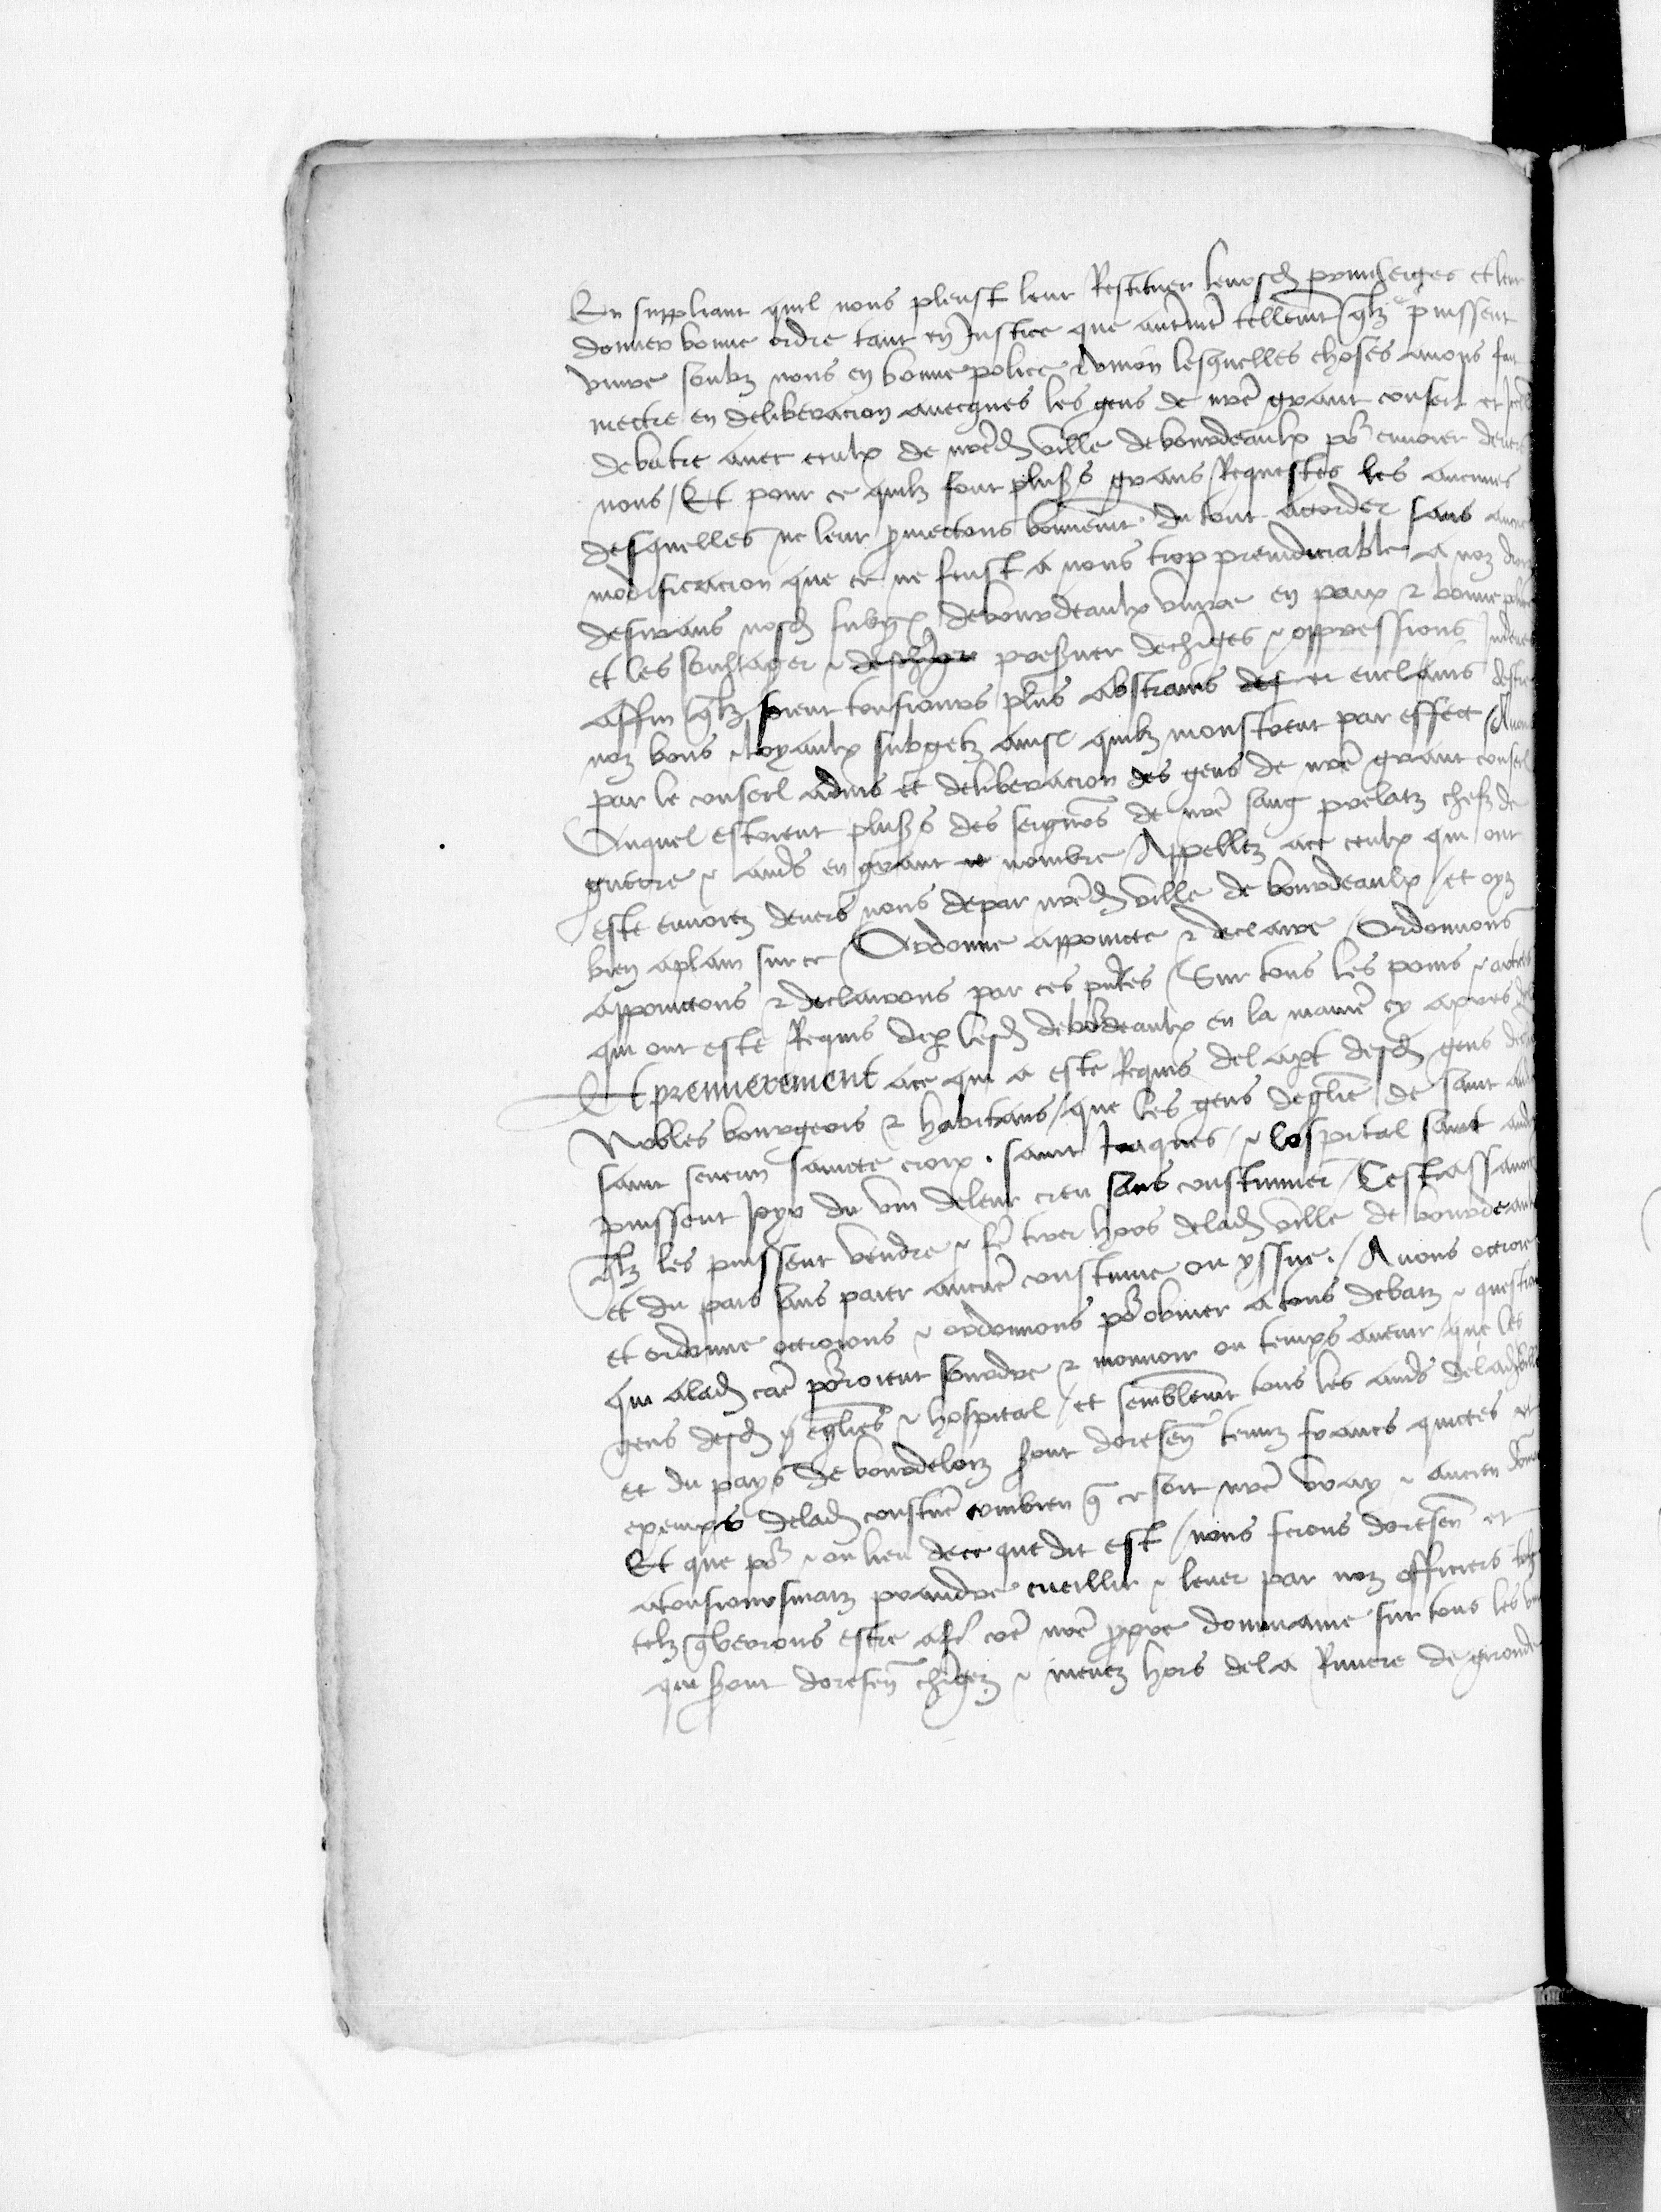 En suppliant quil nous pleust leur Restituer leursd privileiges et leur
donner bonne ordre tant en Justice que autrement tellement qlz puissent
vivre soubz nous en bonne police & union lesquelles choses avons fait
mettre en deliberacion avecques les gens de nre grant conseil et
debatre avec ceulx de nred ville de bourdeaulx pr envoier devers
nous / Et pour ce quilz font plus's grans Requestes les aucunes
desquelles ne leur bonnement du tout accorder sans
modificacion que ce ne feust a nous trop preiudiciable a noz
desirans nosd subgz de bourdeaulx vivre en paix & bonne police
et les soulaiger & preserver de chages & oppressions
affin qlz soient tousiours plus abstrains et enclains destre
noz bons & loyaulx subgetz ainsi quilz monstrent par effect / Avons
par le conseil advis et deliberacion des gens de nre grant conseil
Auquel estoient plus's des seigneurs de nre sang prelatz chefz de
guerre & aut's en grant nombre / Appellez ace ceulx qui ont
este envoiez devers nous depar nred ville de bourdeaulx / et oyz
bien aplain sur ce / Ordonne appointe & declaire / Ordonnons
appointons & declairons par ces pntes / Sur tous les poins & articles
qui ont este Requis de p lesd de bordeaulx en la maniere cy apres
Et premierement ace qui a este Requis de la part desd gens
Nobles bourgeois & habitans / que les gens deglie de saint
saint severin saincte croix . saint Jaques / & lospital saint
puissent Joyr du vin de leur creu sans coustumer / Cest assavoir
qlz les puissent vendre & fe tirer hors de lad ville de bourdeaulx
et du pais sans paier aucune coustume ou yssue . / Avons octroie
et ordonne octroions & ordonnons pr obvier a tous debatz & questions
qui alad cause porroient sourdre & mouvoir ou temps avenir / que les
gens desd eglies & hospital / et semblement tous les aut's de lad ville
et du pays de bourdelois seront doresen tenuz francs quictes et
exemps de lad coustume combien q ce soit nre vray & ancien
Et que pr & ou lieu de ce que dit est / nous ferons doresen et
atousioursmais prandre cueillir & lever par noz officiers
telz q verrons estre afe come nre ppre dommaine sur tous les
qui seront doresen chagez & menez hors de la Riviere de gironde